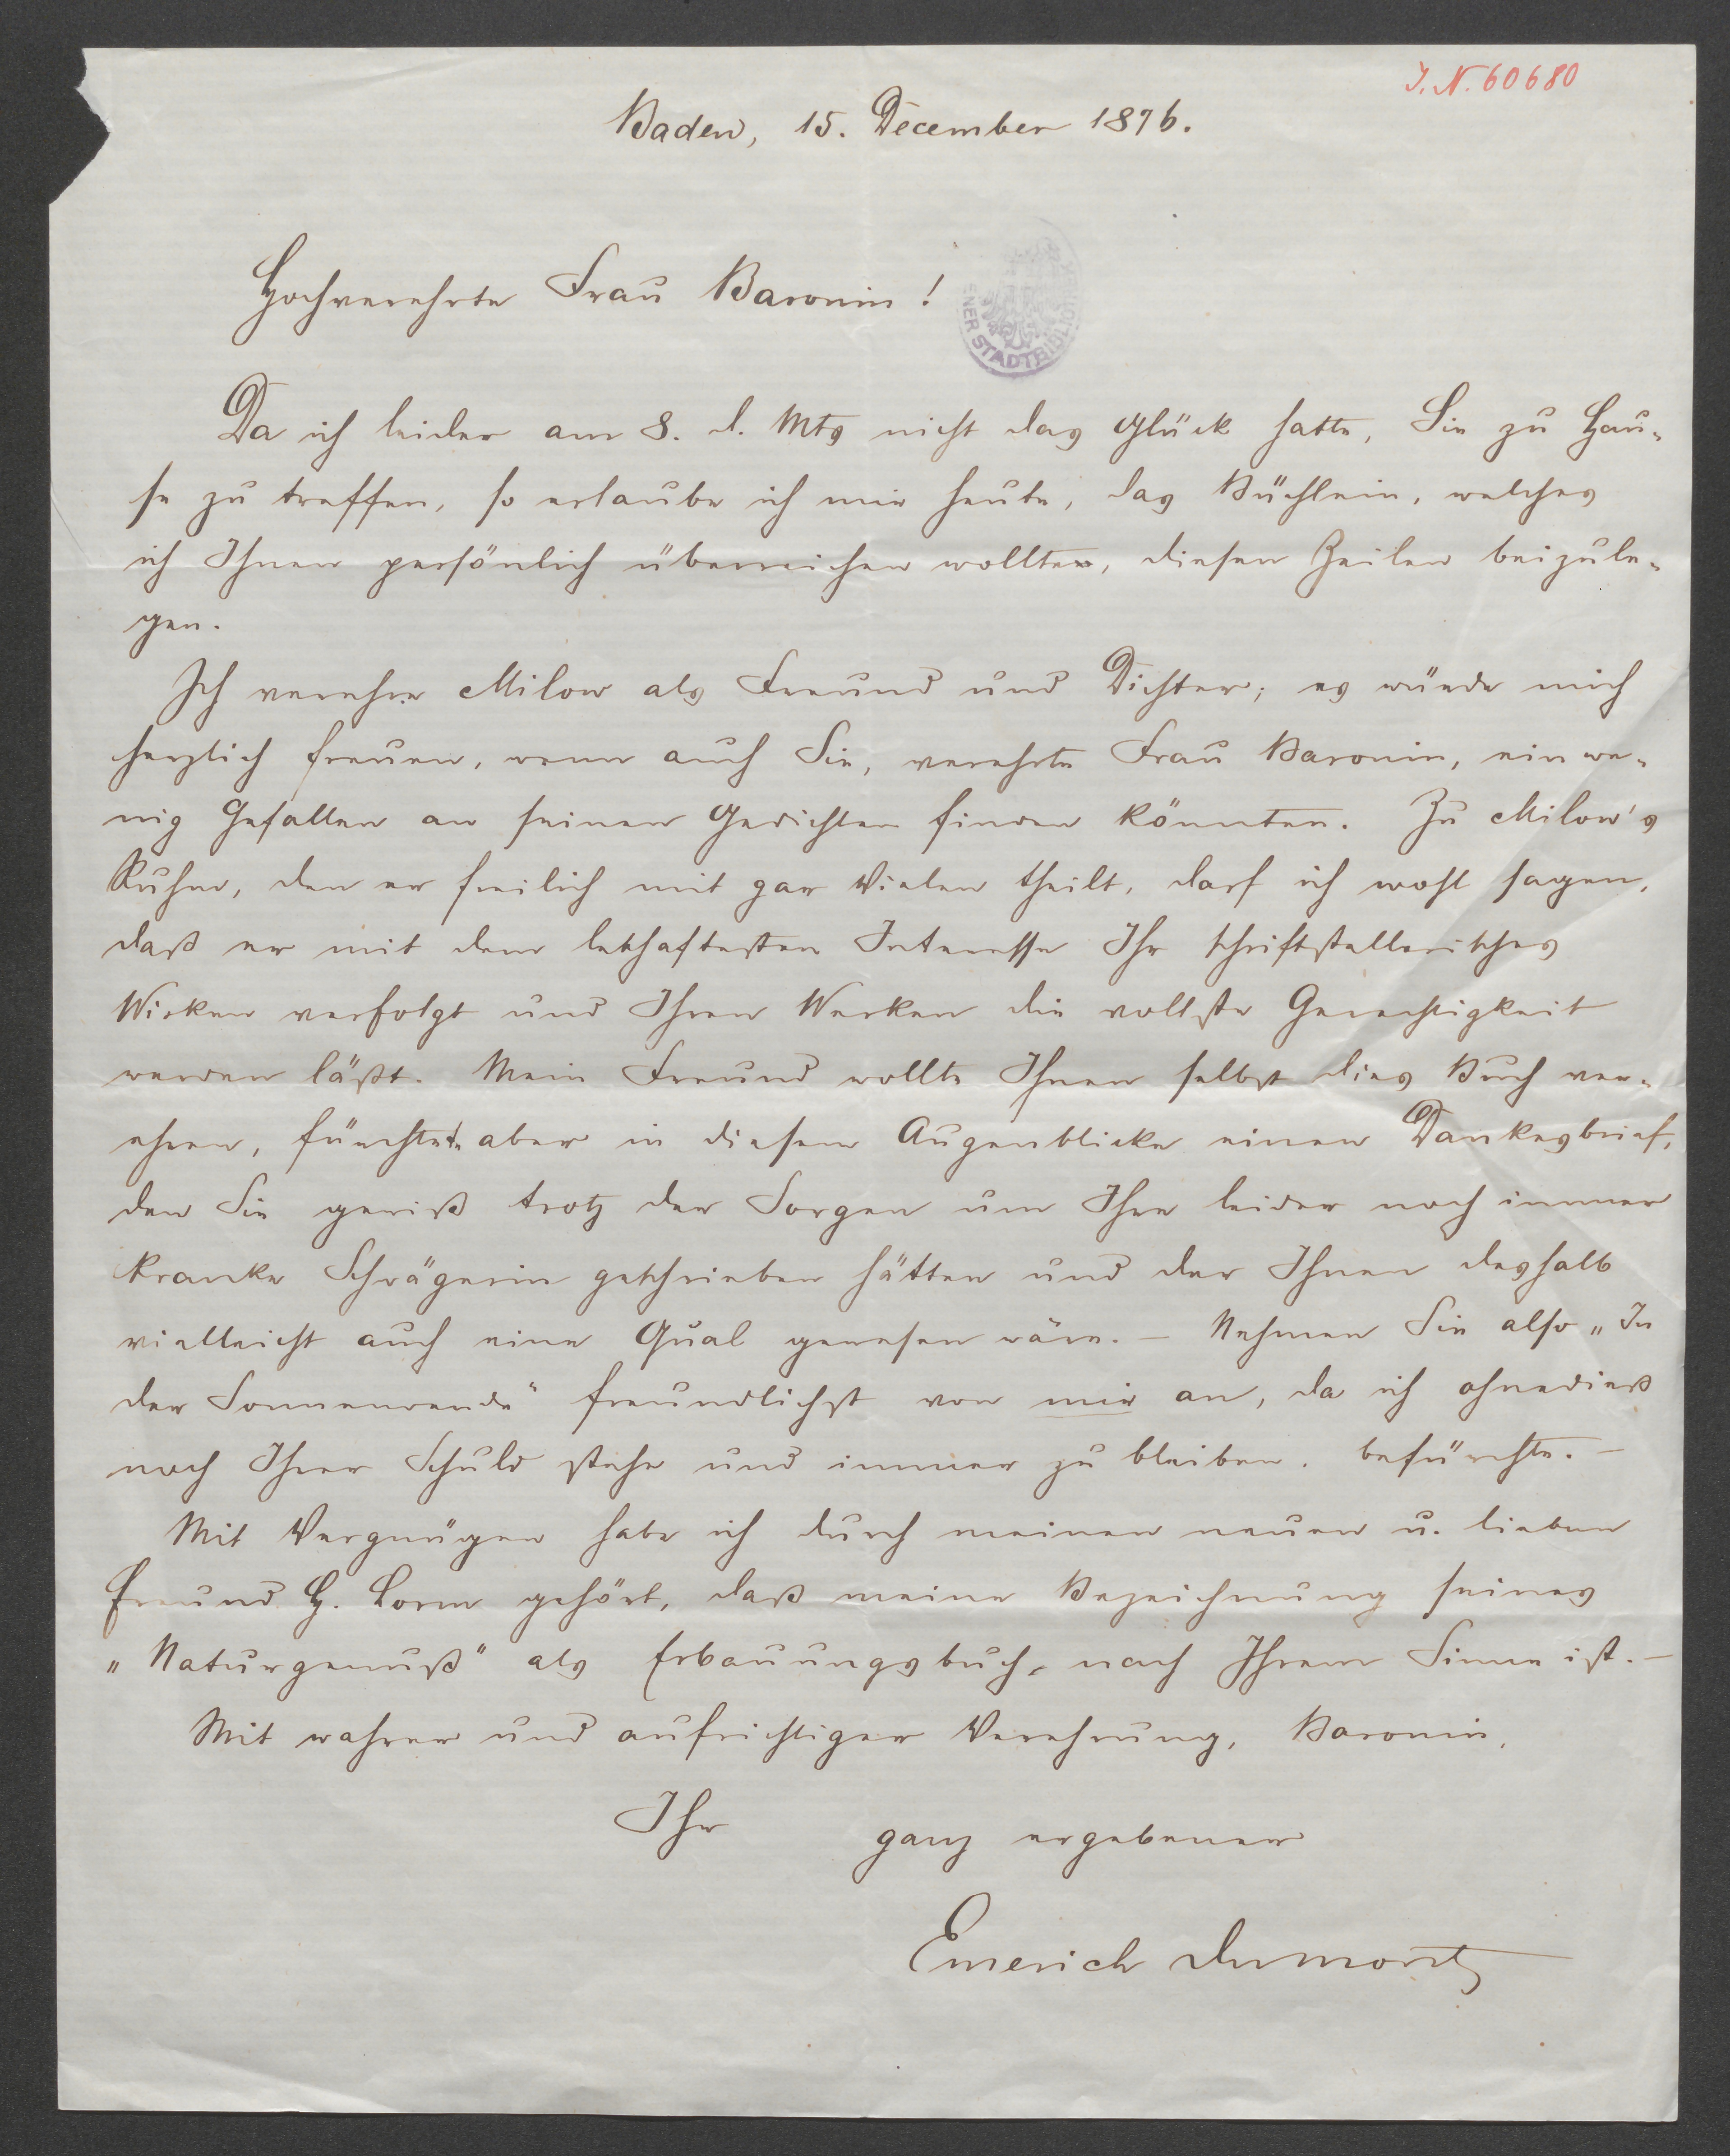 I. N. 60680
Baden, 15. December 1876.
Hochverehrte Frau Baronin!
NER STADTBIBLIOTHEK
Da ich leider am 8. d. Mts nicht das Glück hatte, Sie zu Hau-
se zu treffen, so erlaube ich mir heute, das Büchlein, welches
ich Ihnen persönlich überreichen wollte, diesen Zeilen beizule-
gen.
Ich verehre Milow als Freund und Dichter; es würde mich
herzlich freuen, wenn auch Sie, verehrte Frau Baronin, ein we-
nig Gefallen an seinen Gedichten finden könnten. Zu Milow's
Ruhm, den er freilich mit gar Vielen theilt, darf ich wohl sagen,
daß er mit dem lebhaftesten Interesse Ihr schriftstellerisches
Wirken verfolgt und Ihren Werken die vollste Gerechtigkeit
werden läßt. Mein Freund wollte Ihnen selbst dies Buch ver-
ehren, fürchtete aber in diesem Augenblicke einen Dankesbrief,
den Sie gewiß trotz der Sorgen um Ihre leider noch immer
kranke Schwägerin geschrieben hätten und der Ihnen deshalb
vielleicht auch eine Qual gewesen wäre. – Nehmen Sie also „In
der Sonnenwende" freundlichst von mir an, da ich ohnedieß
noch Ihrer Schuld stehe und immer zu bleiben, befürchte. –
Mit Vergnügen habe ich durch meinen neuen u. lieben
Freund H. Lorm gehört, daß meine Bezeichnung seines
„Naturgenuß" als Erbauungsbuch, nach Ihrem Sinne ist. –
Mit wahrer und aufrichtiger Verehrung, Baronin,
Ihr ganz ergebener
Emerich Dumont